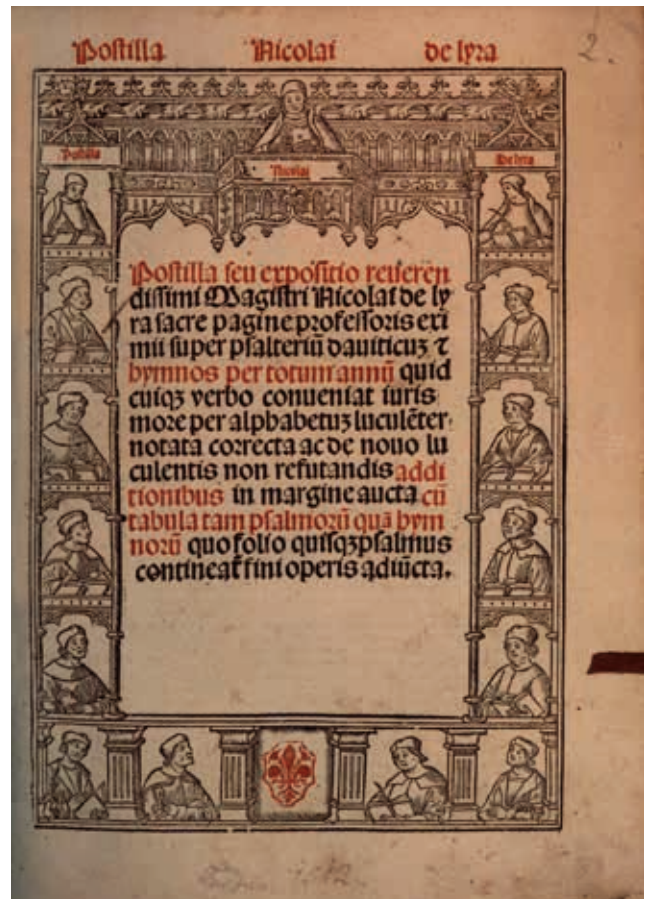 Postilla Nicolai de lyra
2.
Postilla Nicolai De lyra
Postilla seu expositio reueren
dissimi Magistri Nicolai de ly
ra sacre pagine professoris exi
mii super psalteriū dauiticuz ⁊
hymnos per totum annū quid
cuiqꝫ verbo conueniat iuris
more per alphabetuz luculēter
notata correcta ac de nouo lu
culentis non refutandis addi
tionibus in margine aucta cū
tabula tam psalmorū quā hym
norū quo folio quisqꝫ psalmus
contineat̄ fini operis adiūcta.